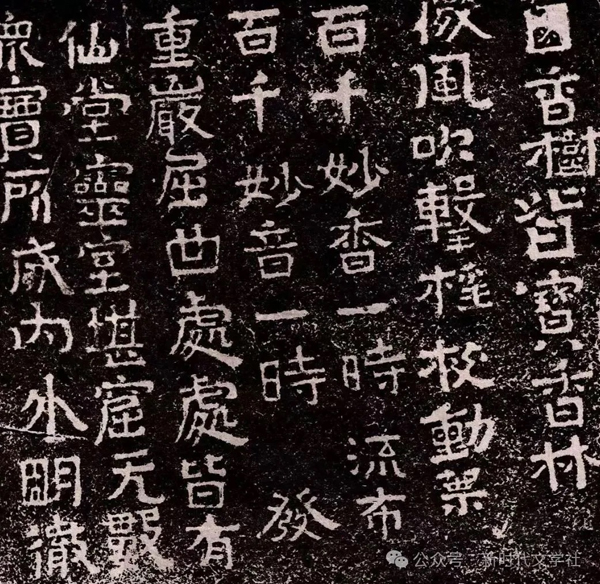 香樹皆寶香林
微風吹擊枝枝動葉
百千妙香一時流布
百千妙音一時發
重巖屈曲處處皆有
仙堂靈室堪窟无數
眾寶所成內外明徹
公众号 · 新时代文学社